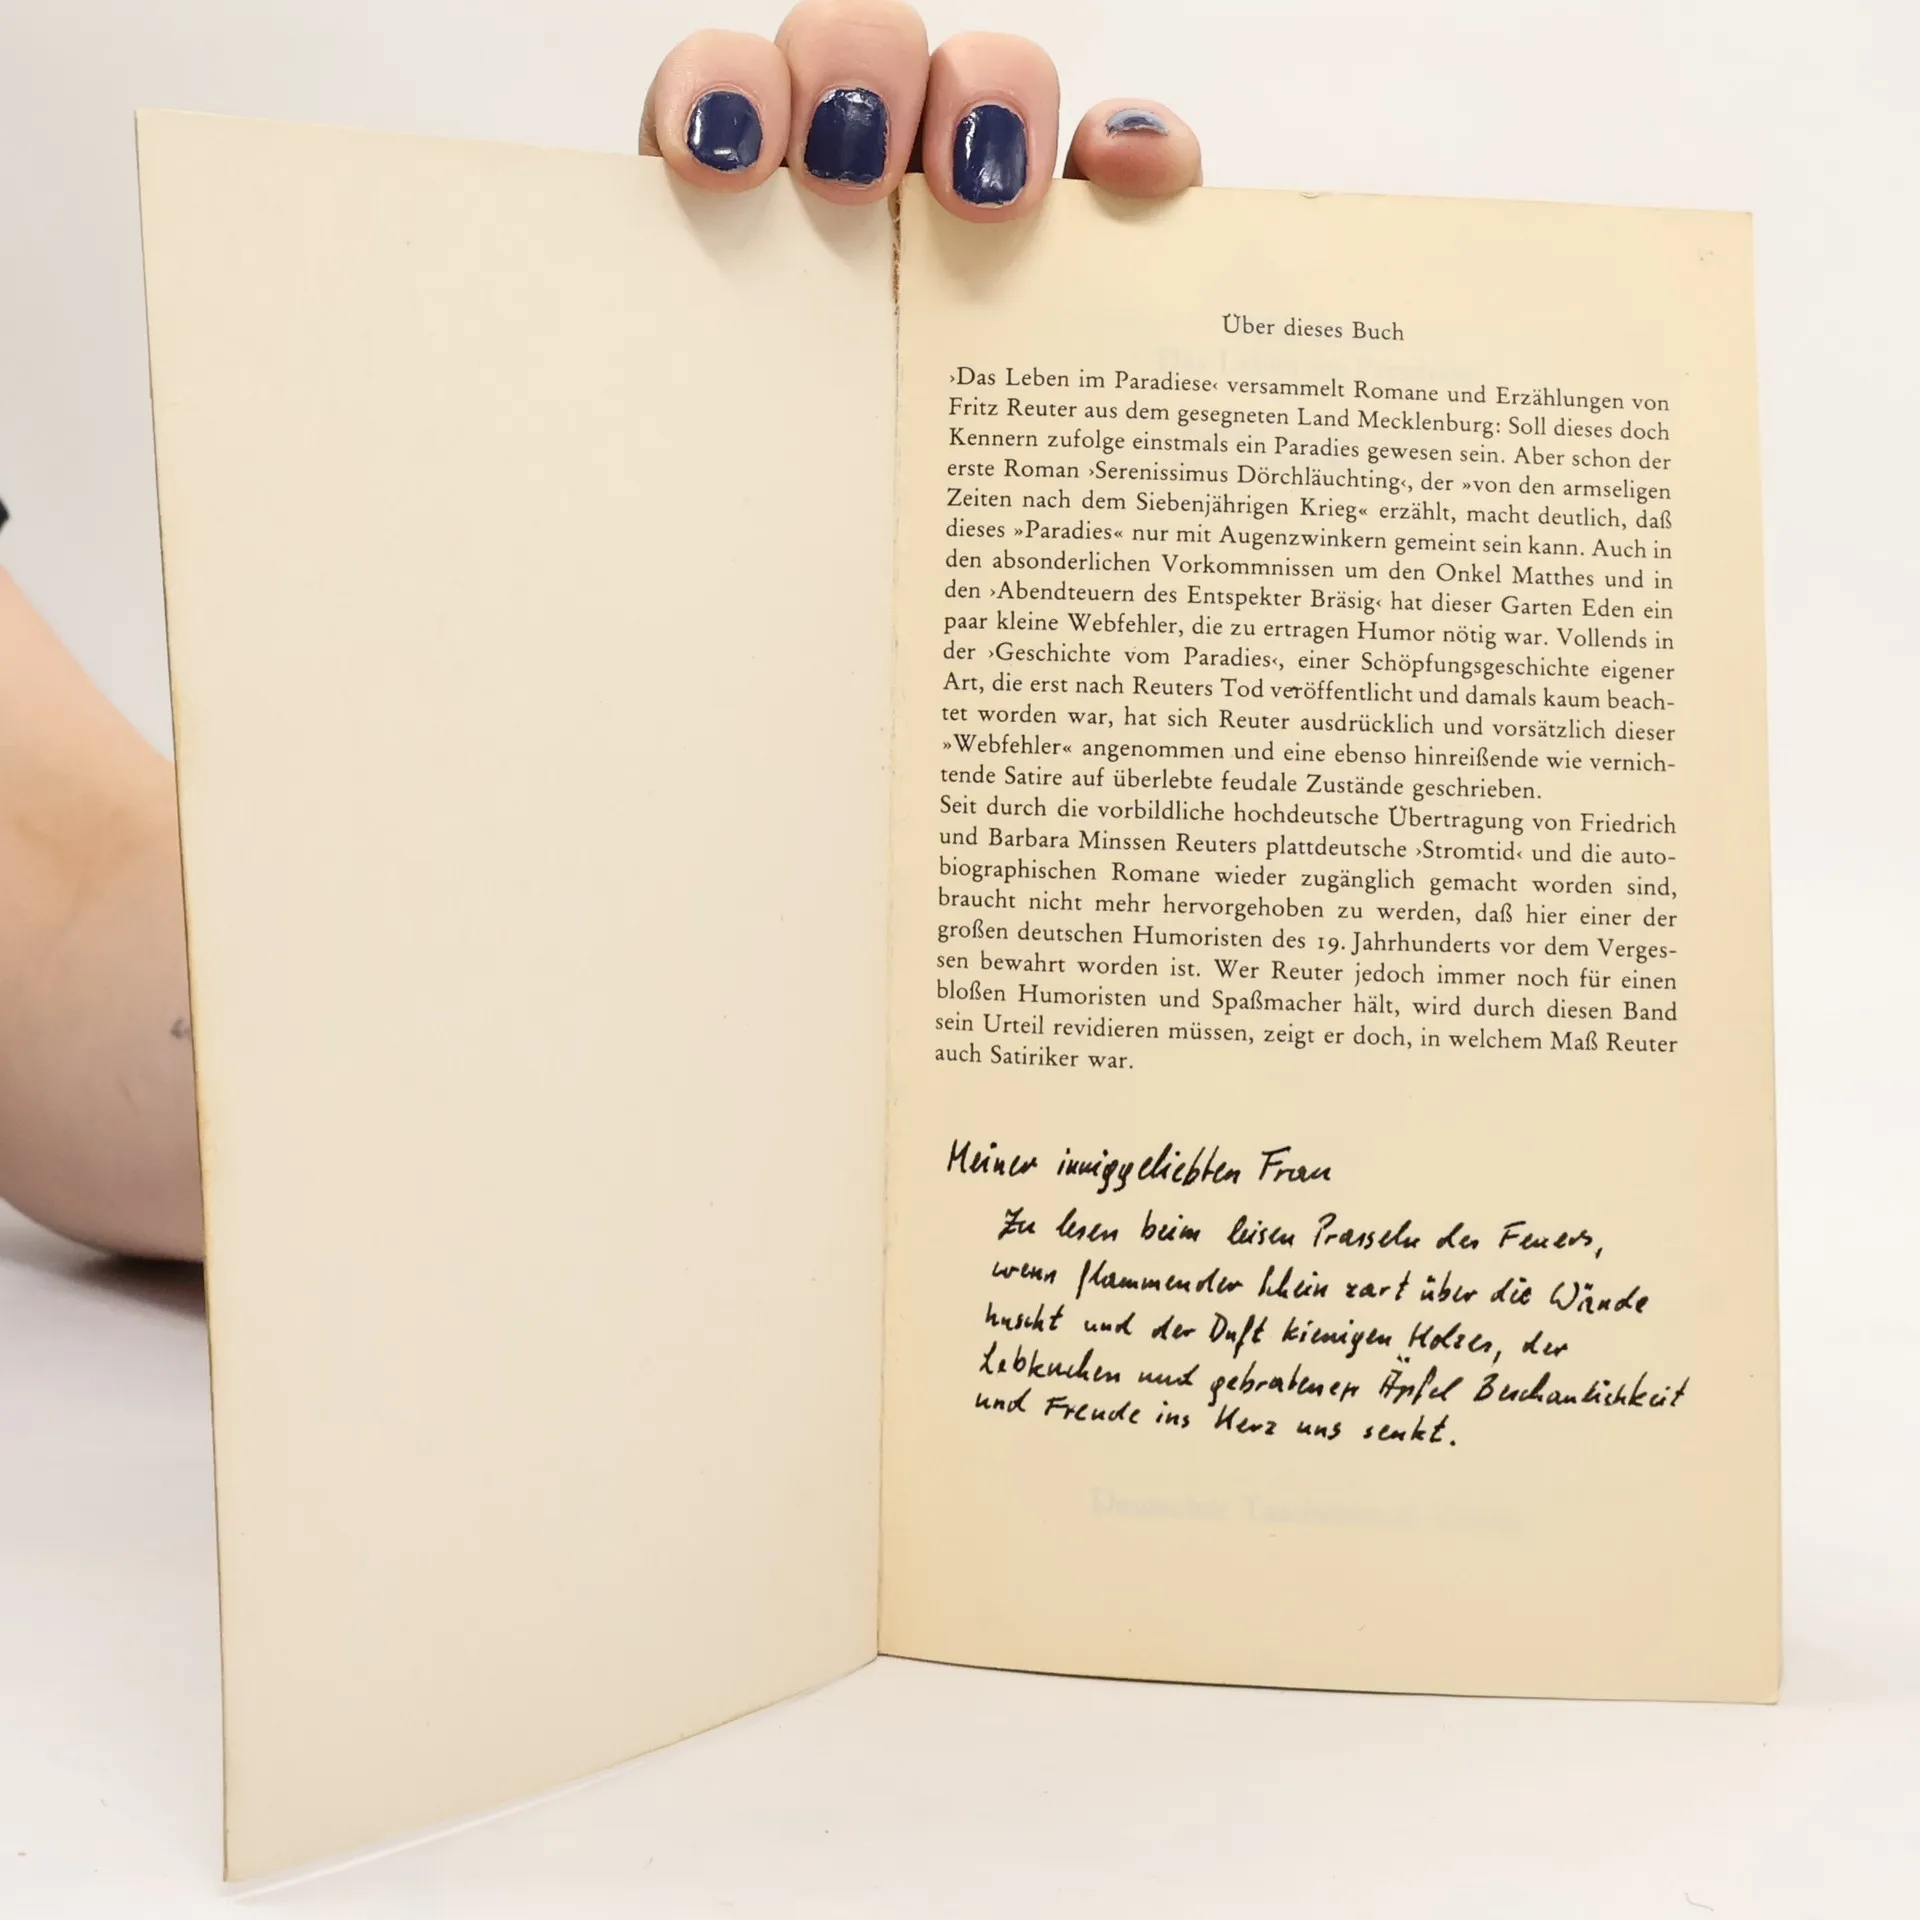 Über dieses Buch
›Das Leben im Paradiese‹ versammelt Romane und Erzählungen von
Fritz Reuter aus dem gesegneten Land Mecklenburg: Soll dieses doch
Kennern zufolge einstmals ein Paradies gewesen sein. Aber schon der
erste Roman ›Serenissimus Dörchläuchting‹, der »von den armseligen
Zeiten nach dem Siebenjährigen Krieg« erzählt, macht deutlich, daß
dieses »Paradies« nur mit Augenzwinkern gemeint sein kann. Auch in
den absonderlichen Vorkommnissen um den Onkel Matthes und in
den ›Abendteuern des Entspekter Bräsig‹ hat dieser Garten Eden ein
paar kleine Webfehler, die zu ertragen Humor nötig war. Vollends in
der ›Geschichte vom Paradies‹, einer Schöpfungsgeschichte eigener
Art, die erst nach Reuters Tod veröffentlicht und damals kaum beach-
tet worden war, hat sich Reuter ausdrücklich und vorsätzlich dieser
»Webfehler« angenommen und eine ebenso hinreißende wie vernich-
tende Satire auf überlebte feudale Zustände geschrieben.
Seit durch die vorbildliche hochdeutsche Übertragung von Friedrich
und Barbara Minssen Reuters plattdeutsche ›Stromtid‹ und die auto-
biographischen Romane wieder zugänglich gemacht worden sind,
braucht nicht mehr hervorgehoben zu werden, daß hier einer der
großen deutschen Humoristen des 19. Jahrhunderts vor dem Verges-
sen bewahrt worden ist. Wer Reuter jedoch immer noch für einen
bloßen Humoristen und Spaßmacher hält, wird durch diesen Band
sein Urteil revidieren müssen, zeigt er doch, in welchem Maß Reuter
auch Satiriker war.
Meiner inniggeliebten Frau
Zu lesen beim leisen Prasseln des Feuers,
wenn flammender Schein zart über die Wände
huscht und der Duft kienigen Holzes, der
Lebkuchen und gebratenen Äpfel Beschaulichkeit
und Freude ins Herz uns senkt.